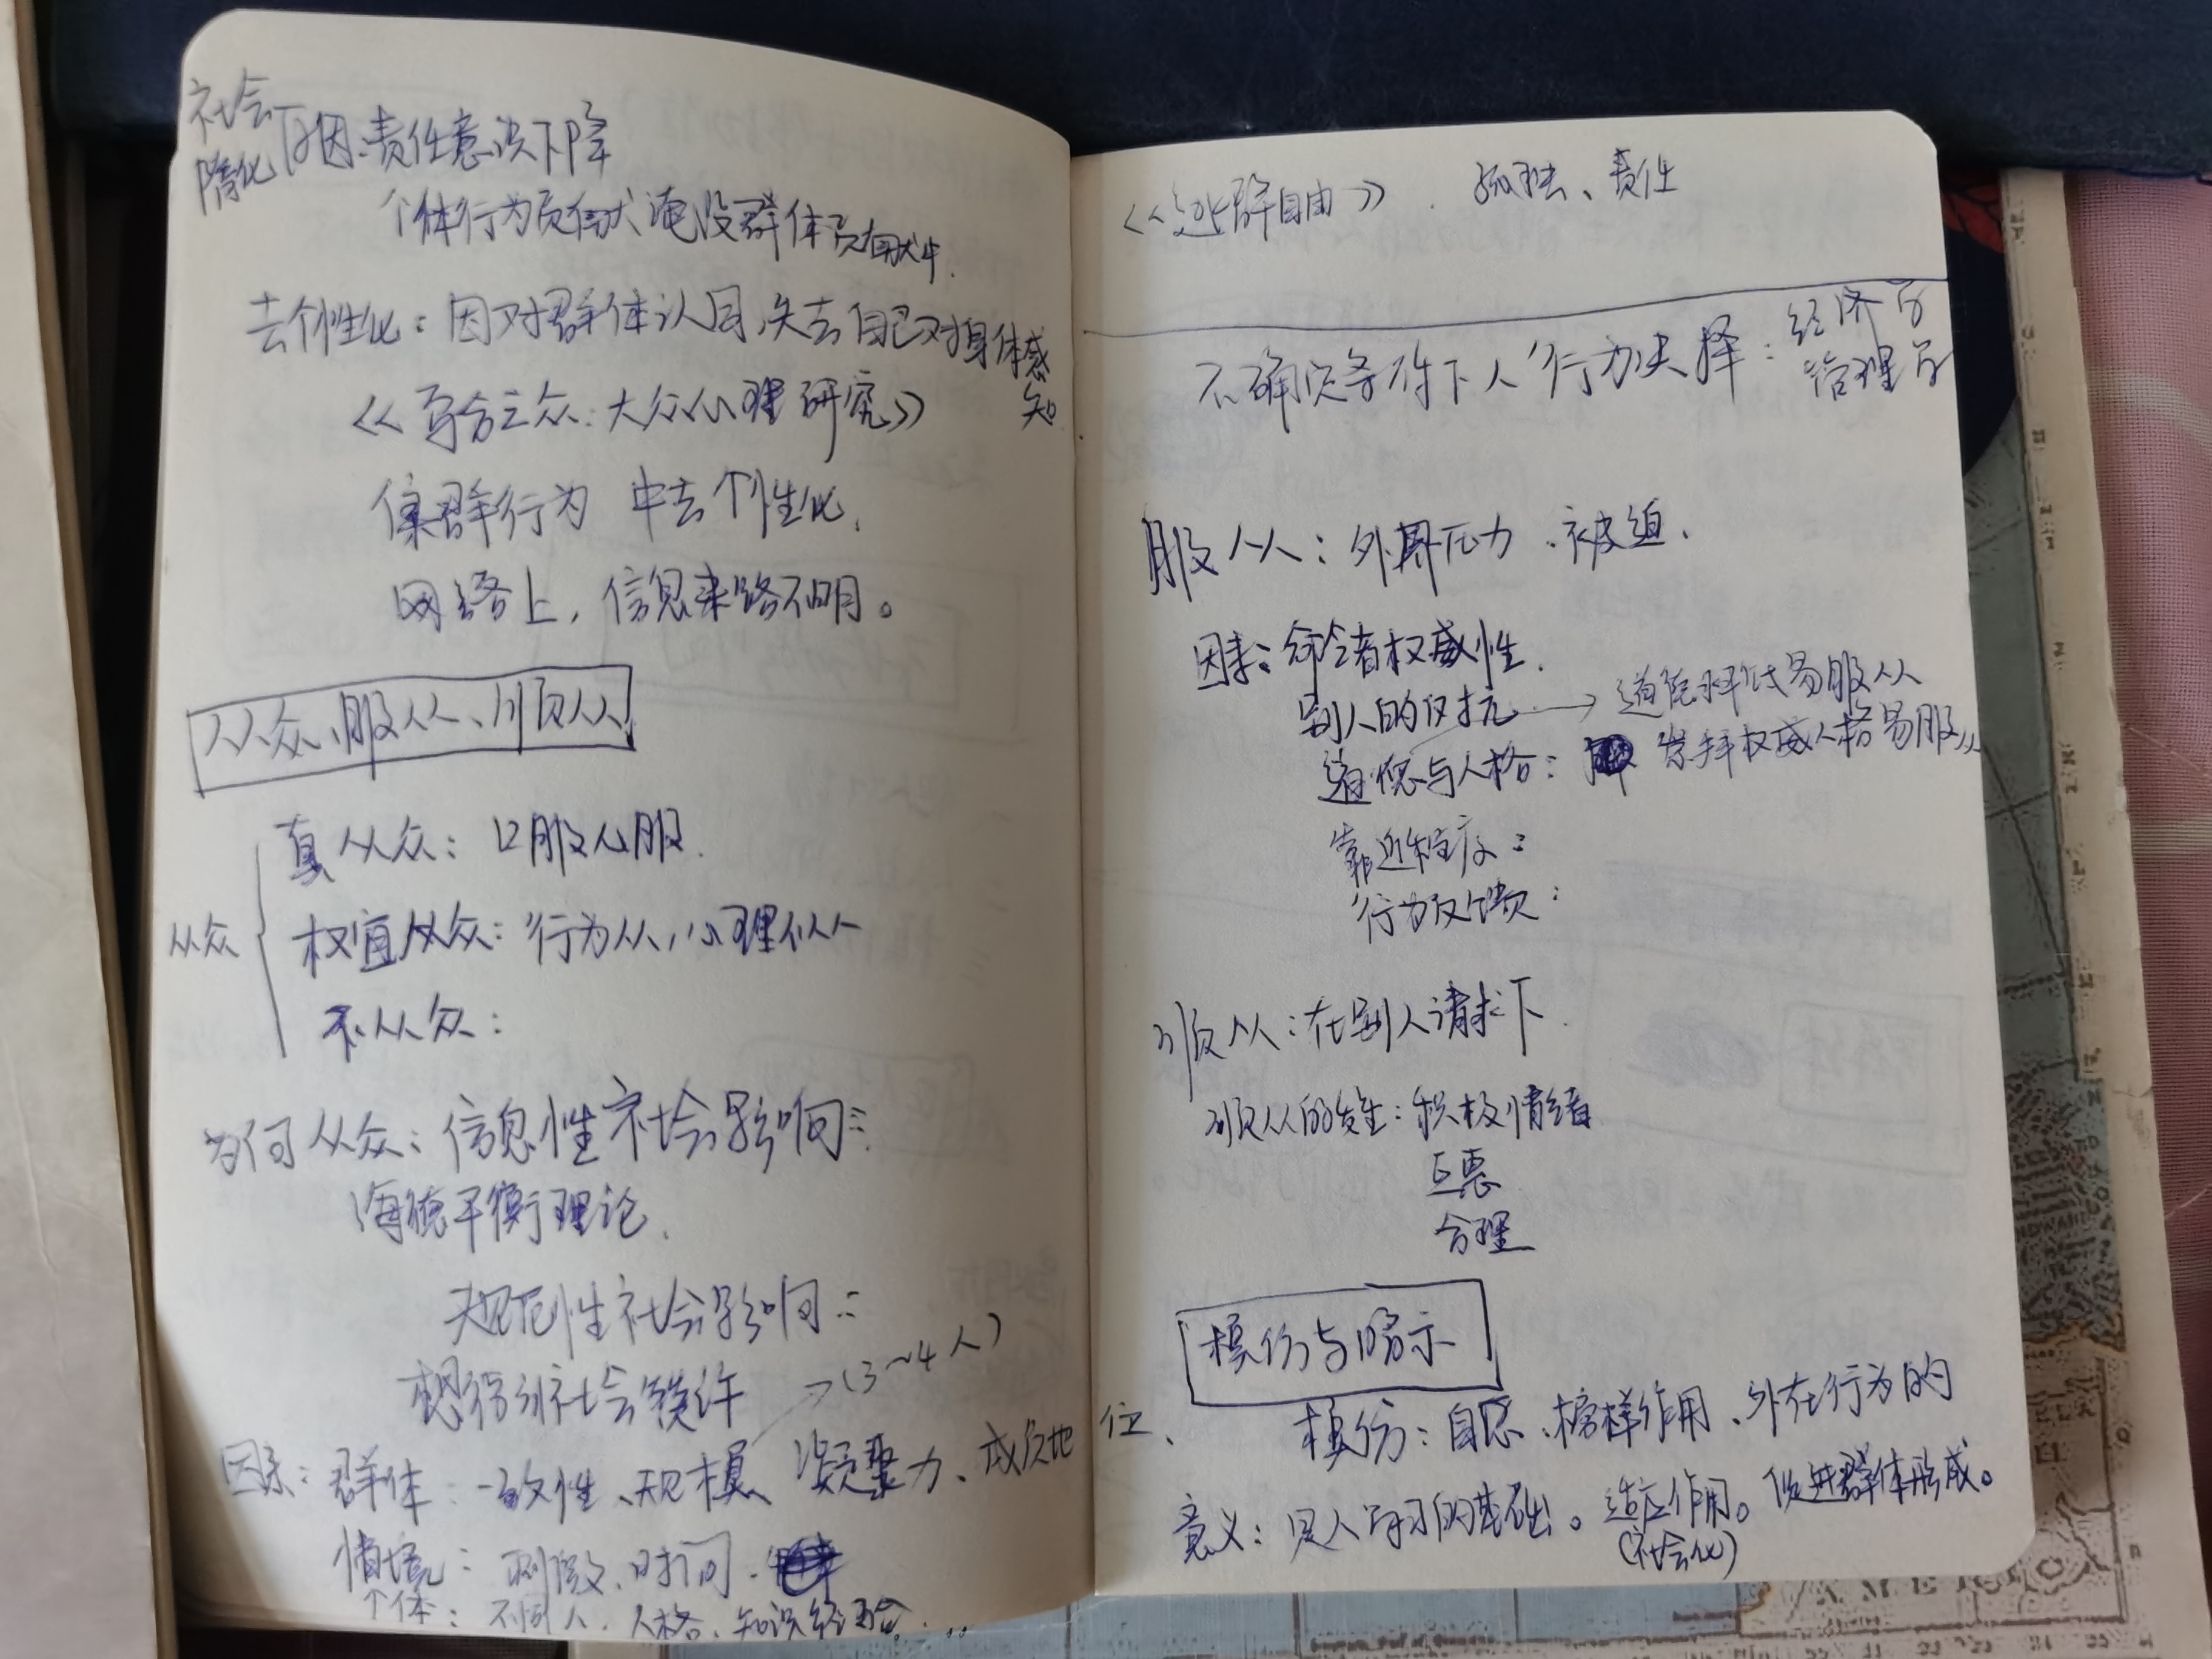 社会
惰化
原因：责任意识下降
个体行为贡献淹没群体贡献中.
去个性化：因对群体认同,失去自己对身体感
知
《乌合之众:大众心理研究》
集群行为 中去个性化.
网络上，信息来路不明。
从众、服从、顺从
真从众：口服心服.
从众
权宜从众：行为从，心理不从
不从众：
为何从众：信息性社会影响：
海德平衡理论.
规范性社会影响：
想得到社会赞许
→(3~4人)
因素：群体：一致性、规模、凝聚力、成员地位、
情境：刺激、时间.
个体：不同人、人格、知识经验...
《逃避自由》. 孤独、责任
不确定条件下人行为决择：经济学
管理学
服从：外界压力.被迫.
因素：命令者权威性.
别人的反抗.
→道德水平低易服从
道德与人格：崇拜权威人格易服从
靠近程度：
行为反馈：
顺从：在别人请求下.
顺从的发生：积极情绪
互惠
合理
模仿与暗示
模仿：自愿、榜样作用、外在行为的
意义：是人学习的基础。适应作用。促进群体形成。
(社会化)